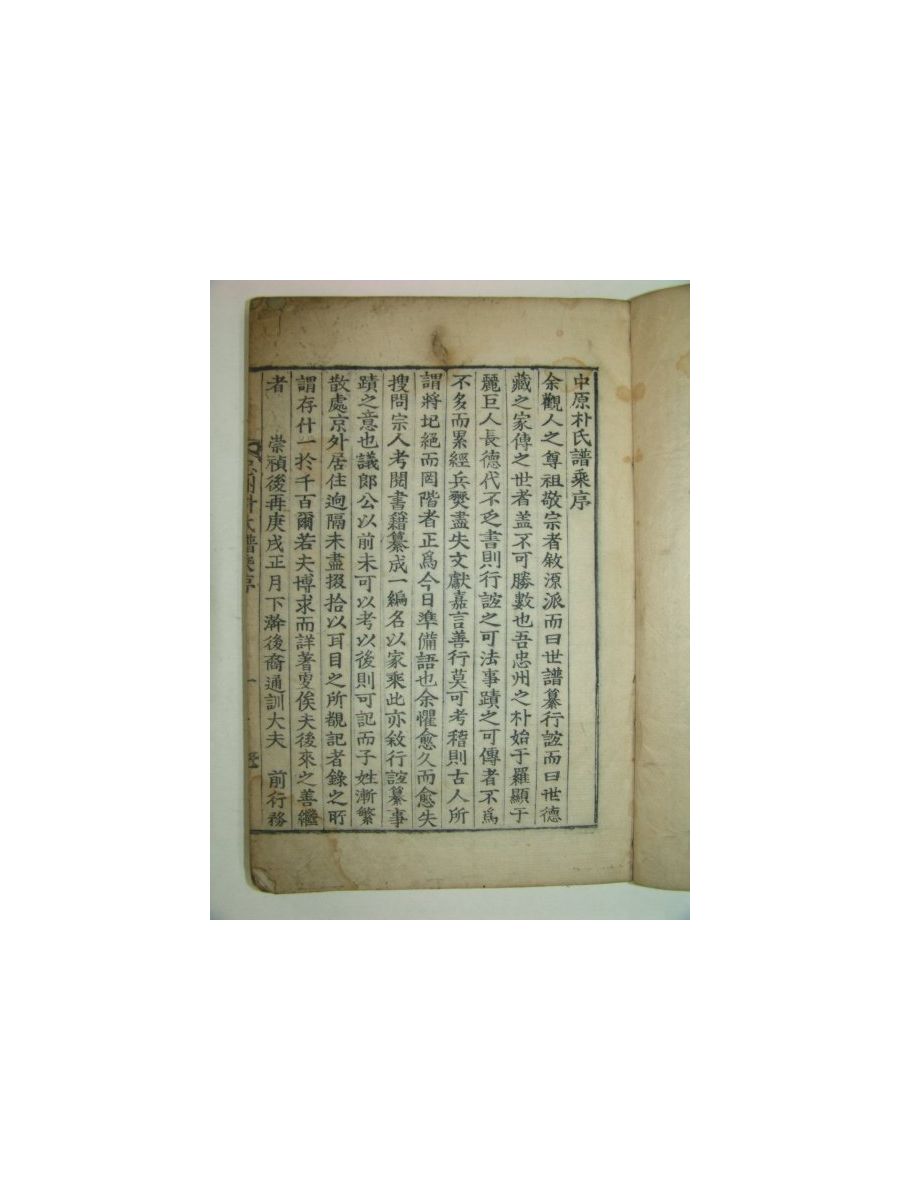 中原朴氏譜乘序
余觀人之尊祖敬宗者敘源派而曰世譜纂行誼而曰世德
藏之家傳之世者盖不可勝數也吾忠州之朴始于羅顯于
麗巨人長德代不乏書則行誼之可法事蹟之可傳者不爲
不多而累經兵燹盡失文獻嘉言善行莫可考稽則古人所
謂將圮絕而罔階者正爲今日準備語也余懼愈久而愈失
搜問宗人考閱書籍纂成一編名以家乘此亦敘行誼纂事
蹟之意也議郎公以前未可以考以後則可記而子姓漸繁
散處京外居住逈隔未盡掇拾以耳目之所覩記者錄之所
謂存什一於千百爾若夫博求而詳著更俟夫後來之善繼
者 崇禎後再庚戌正月下澣後裔通訓大夫 前行務
忠州朴氏譜乘序 一